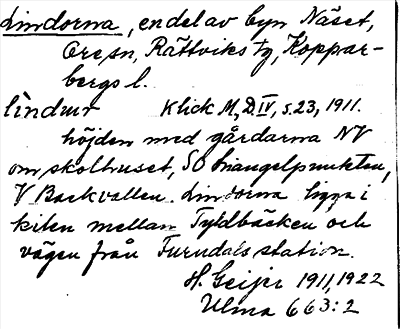 Lindorna, en del av byn Näset,
Ore sn, Rättviks tg, Koppar-
bergs l.
lìndur Klick M, D. IV, s. 23, 1911.
höjden med gårdarna NV
om skolhuset, SO triangelpunkten,
V Backvallen. Lindorna ligga i
kilen mellan Tyldbäcken och
vägen från Furudals station.
H. Geijer 1911, 1922
Ulma 663:2